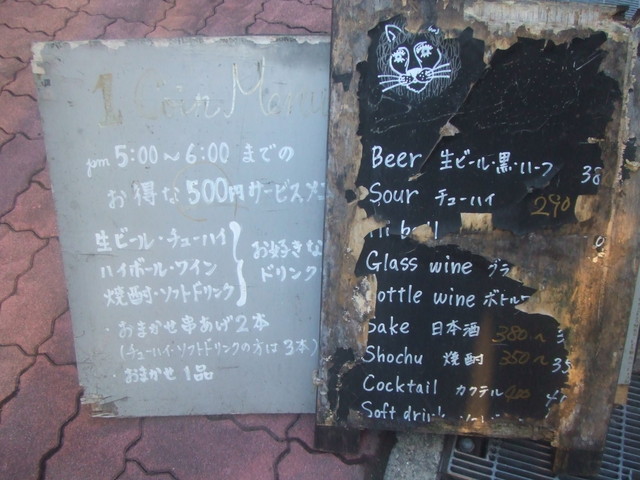 1 Coin Menu
pm 5:00～6:00 までの
お得な 500円 サービスメニ
生ビール・チューハイ
ハイボール・ワイン
焼酎・ソフトドリンク
お好きな
ドリンク
・おまかせ串あげ2本
(チューハイ・ソフトドリンクの方は3本)
・おまかせ 1品
Beer 生ビール・黒・ハーフ 38
Sour チューハイ 290
Hi ball
Glass wine グラ
Bottle wine ボトルワ
Sake 日本酒 380～
Shochu 焼酎 350～ 35
Cocktail カクテル 400
Soft drink